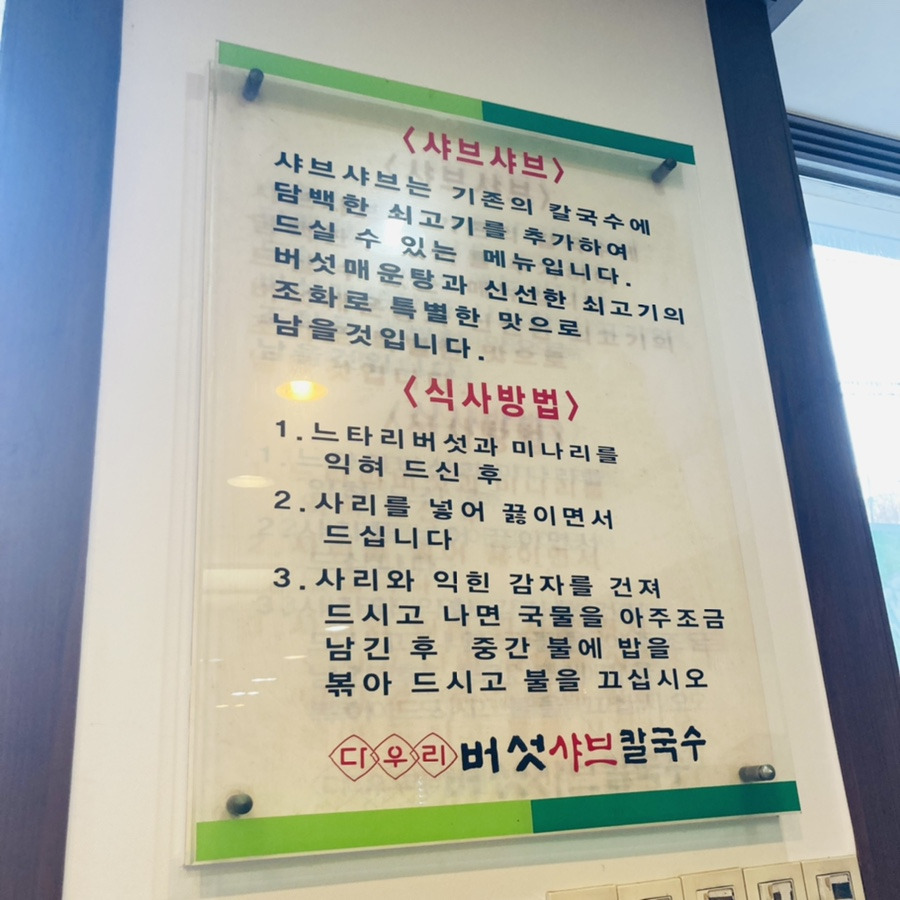 〈샤브샤브〉
샤브샤브는 기존의 칼국수에
담백한 쇠고기를 추가하여
드실 수 있는 메뉴입니다.
버섯매운탕과 신선한 쇠고기의
조화로 특별한 맛으로
남을것입니다.
〈식사방법〉
1.느타리버섯과 미나리를
익혀 드신 후
2.사리를 넣어 끓이면서
드십니다
3.사리와 익힌 감자를 건져
드시고 나면 국물을 아주조금
남긴 후 중간 불에 밥을
볶아 드시고 불을 끄십시오
다우리버섯샤브칼국수